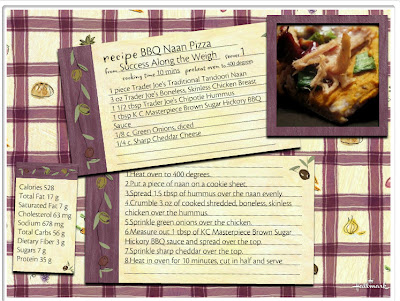 recipe BBQ Naan Pizza
Success Along the Weigh serves 1
from
cooking time 10 mins preheat oven to 400 degrees
1 piece Trader Joe's Traditional Tandoori Naan
3 oz Trader Joe's Boneless, Skinless Chicken Breast
1 1/2 tbsp Trader Joe's Chipotle Hummus
1 tbsp K C Masterpiece Brown Sugar Hickory BBQ
Sauce
1/8 c. Green Onions, diced
1/4 c. Sharp Cheddar Cheese
1.Heat oven to 400 degrees.
2.Put a piece of naan on a cookie sheet.
3.Spread 1.5 tbsp of hummus over the naan evenly.
4.Crumble 3 oz of cooked shredded, boneless, skinless
chicken over the hummus.
5.Sprinkle green onions over the chicken.
6.Measure out 1 tbsp of KC Masterpiece Brown Sugar
Hickory BBQ sauce and spread over the top.
7.Sprinkle sharp cheddar over the top.
8.Heat in oven for 10 minutes, cut in half and serve.
Calories 528
Total Fat 17 g
Saturated Fat 7 g
Cholesterol 63 mg
Sodium 678 mg
Total Carbs 56 g
Dietary Fiber 3 g
Sugars 7 g
Protein 35 g
Hallmark